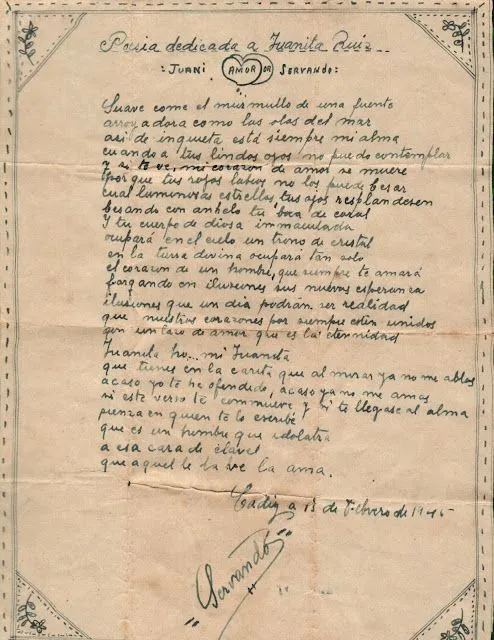 Poesia dedicada a Juanita Ruiz
:JUANI AMOR DR SERVANDO:
Suave come el murmullo de una fuente
arroyadora como las olas del mar
asi de inquieta está siempre mi alma
cuando a tus lindos ojos no puedo contemplar
y si te ve, mi corazon de amor se muere
porque tus rojos labios no los puede besar
cual luminosas estrellas, tus ojos resplandesen
besando con anhelo tu boca de coral
Y tu cuerpo de diosa inmaculada
ocupará en el cielo un trono de cristal
en la tierra divina ocupará tan solo
el corazon de un hombre, que siempre te amará
forgando en ilusiones sus nuevas esperanza
ilusiones que un dia podrán ser realidad
que nuestros corazones por siempre esten unidos
con un laso de amor que es la eternidad
Juanita ho... mi Juanita
que tienes en la carita que al mirar ya no me ablas
acaso yo te he ofendido, acaso ya no me amas
si este verso te commueve y si te llegase al alma
piensa en quien te lo escribe
que es un hombre que idolatra
a esa cara de clavel
que aquel le la ama.
Cadiz a 13 de Febrero de 1945
Servando